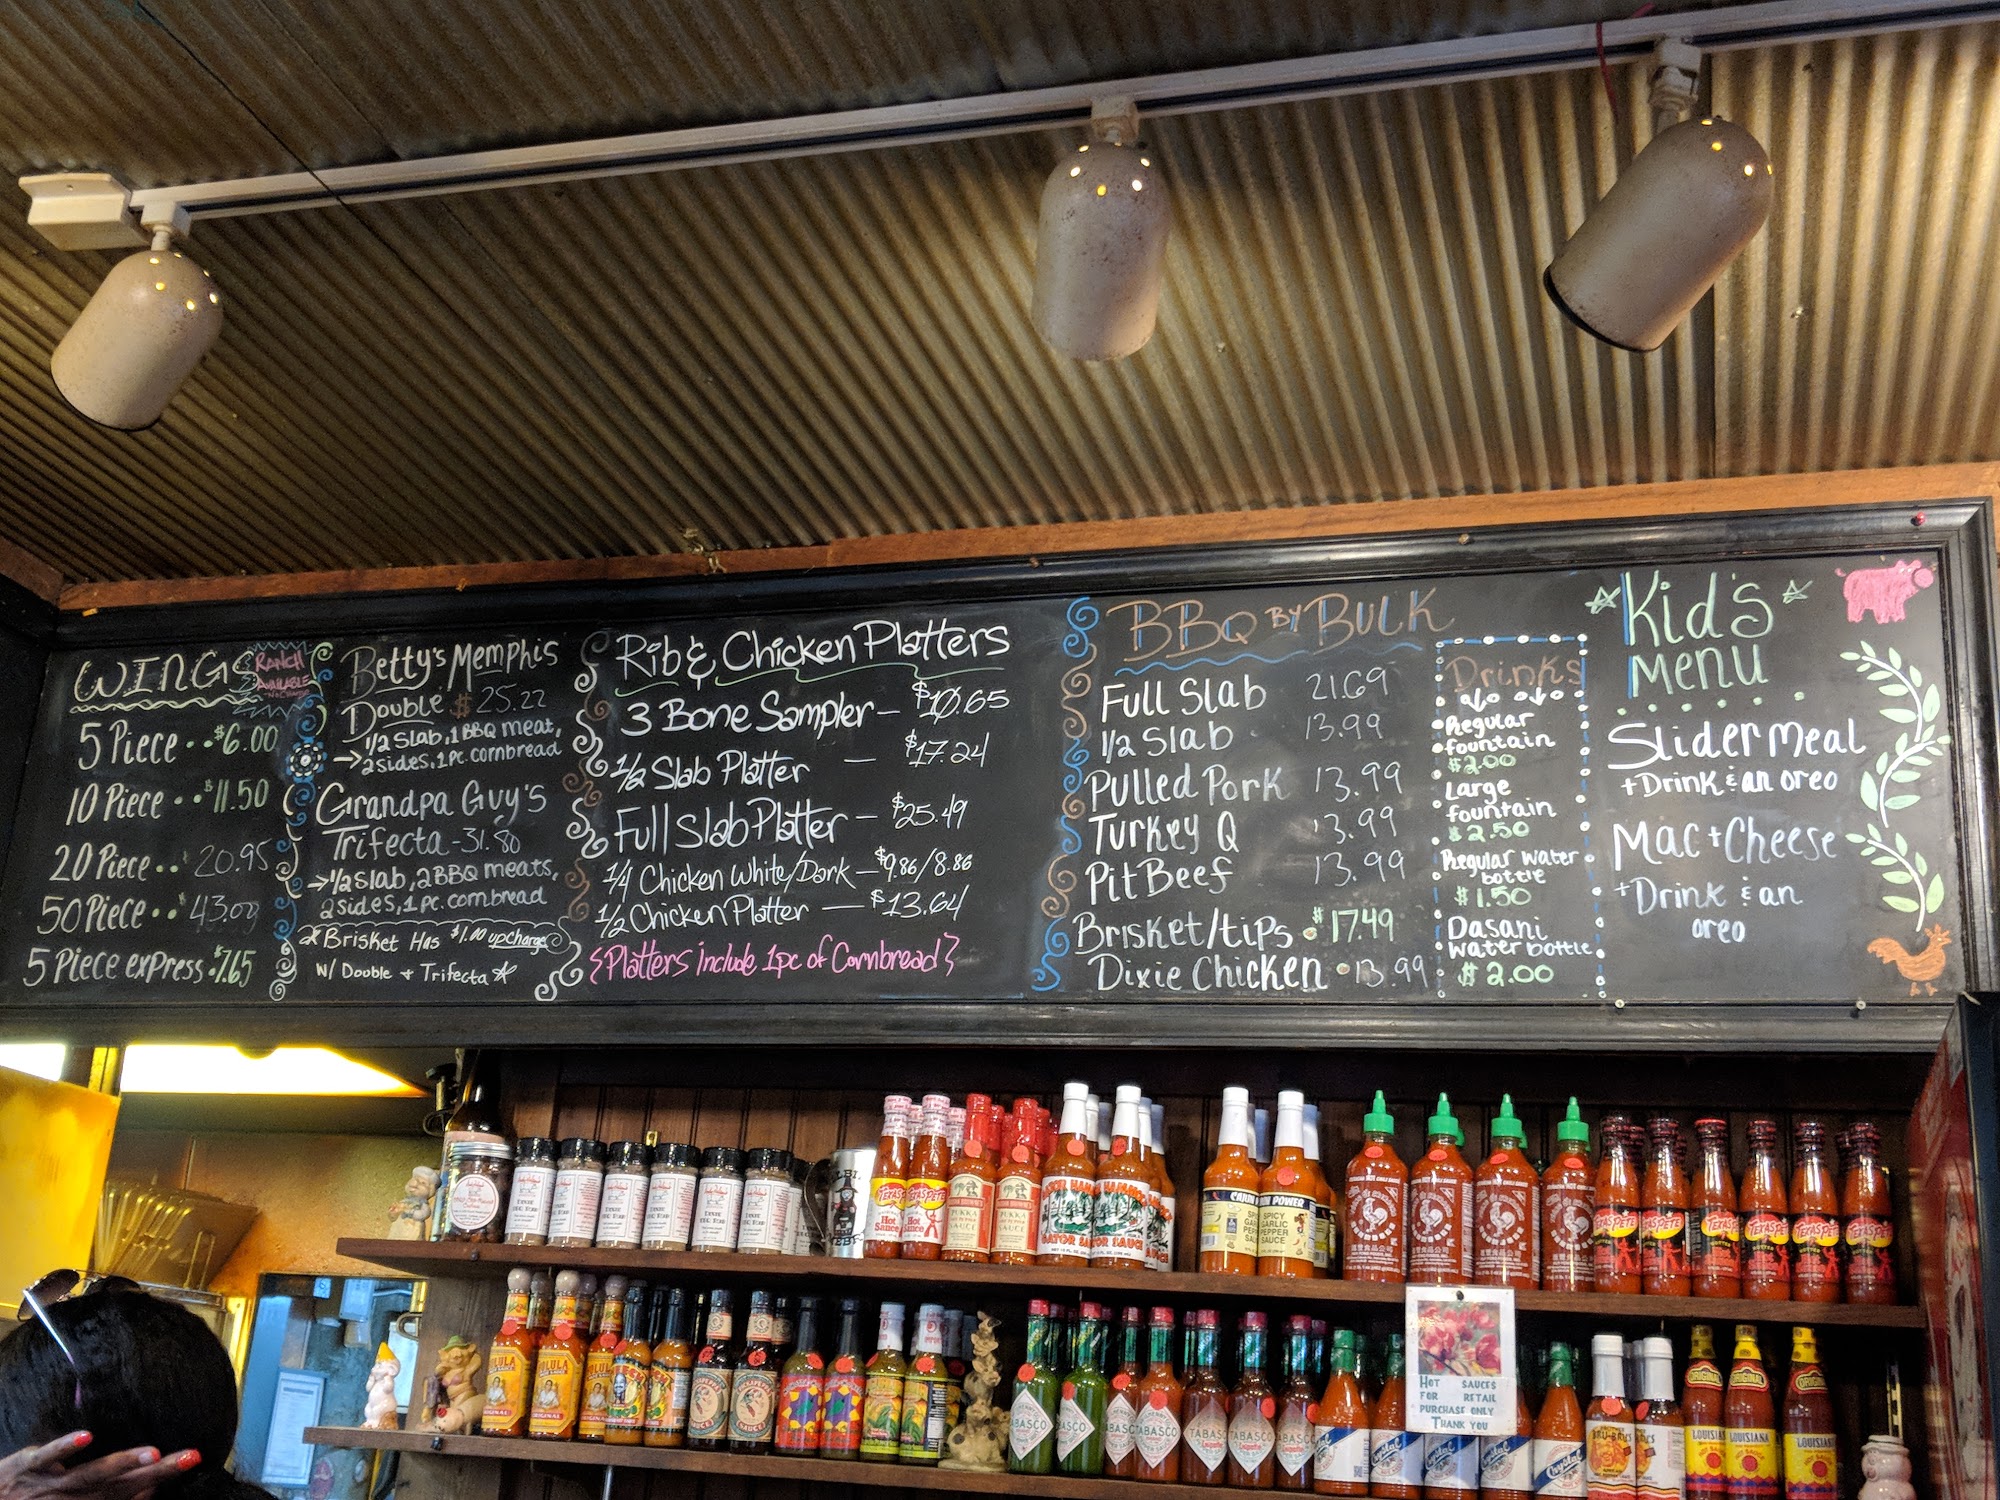 WINGS
RANCH
AVAILABLE
5 Piece..$6.00
10 Piece..$11.50
20 Piece.. 20.95
50 Piece..
5 Piece express.$7.65
Betty's Memphis
Double $25.22
→ 1/2 Slab, 1 BBQ meat,
2 sides, 1 pc. cornbread
Grandpa Guy's
Trifecta - 31.80
→ 1/2 Slab, 2 BBQ meats,
2 sides, 1 pc. cornbread
* Brisket Has $1.00 upcharge
w/ Double + Trifecta *
Rib & Chicken Platters
3 Bone Sampler — $10.65
1/2 Slab Platter — $17.24
Full Slab Platter — $25.49
1/4 Chicken White/Dark — $9.86/8.86
1/2 Chicken Platter — $13.64
{Platters Include 1pc of Cornbread}
BBQ BY BULK
Full Slab 21.69
1/2 Slab 13.99
Pulled Pork 13.99
Turkey Q 13.99
Pit Beef 13.99
Brisket/tips $17.49
Dixie Chicken 13.99
Drinks
Regular
fountain
$2.00
Large
fountain
$2.50
Regular water
bottle
$1.50
Dasani
water bottle
$2.00
Kid's
Menu
Slider Meal
+ Drink & an oreo
Mac + Cheese
+ Drink & an
oreo
TEXAS PETE
Hot
Sauce
GATOR SAUCE
CAJUN POWER
SPICY
GARLIC
PEPPER
SAUCE
TEXAS PETE
CHOLULA
ORIGINAL
TABASCO
TABASCO
Crystal
LOUISIANA
HOT SAUCES
FOR RETAIL
PURCHASE ONLY
THANK YOU